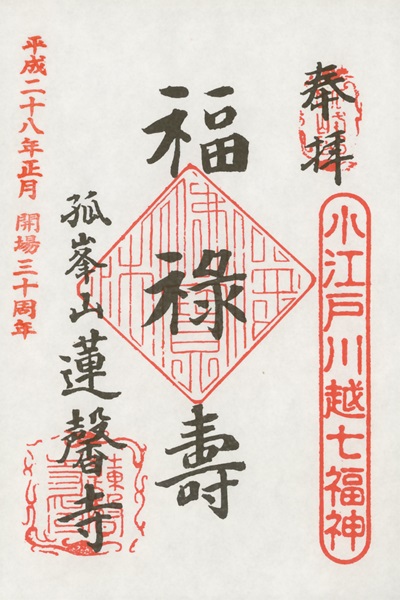 奉拝
小江戸川越七福神
福禄壽
孤峯山 蓮馨寺
平成二十八年正月 開場三十周年